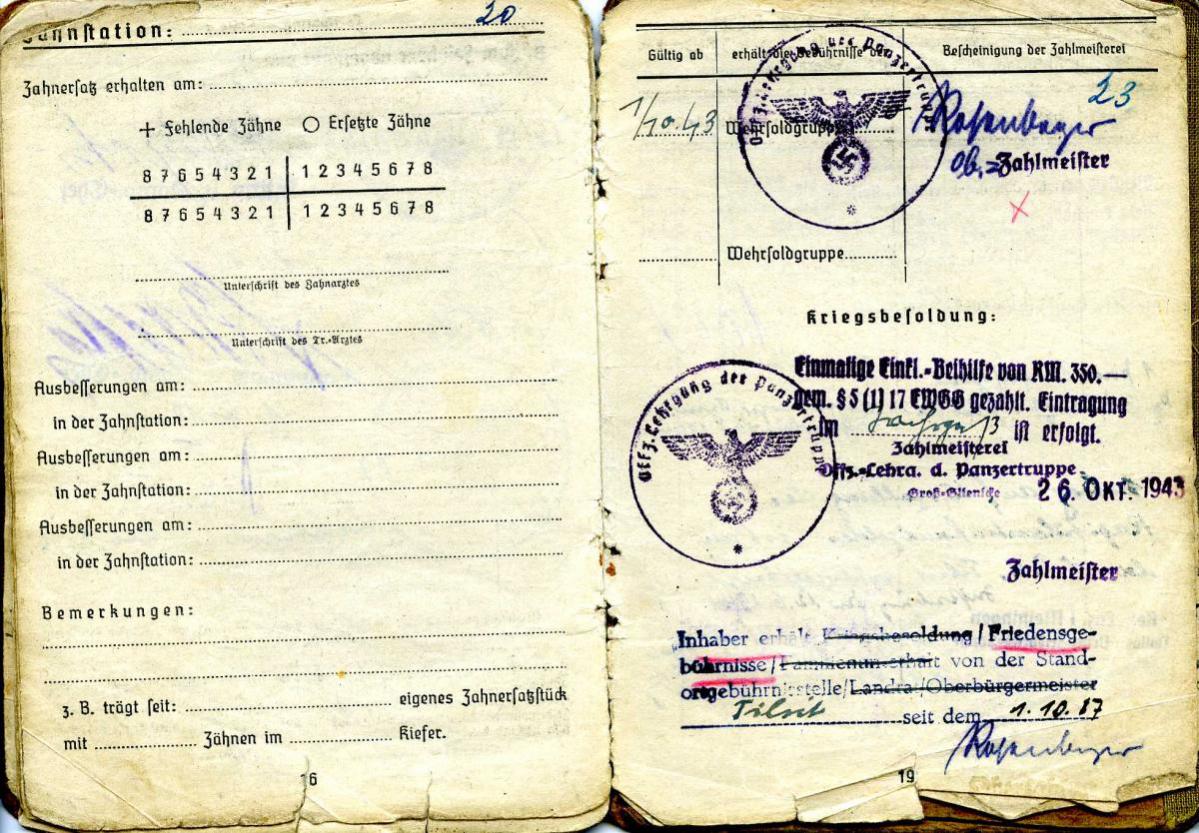 Zahnstation:
20
Zahnersatz erhalten am:
+ Fehlende Zähne ○ Ersetzte Zähne
8 7 6 5 4 3 2 1 | 1 2 3 4 5 6 7 8
8 7 6 5 4 3 2 1 | 1 2 3 4 5 6 7 8
Unterschrift des Zahnarztes
Unterschrift des Tr.-Arztes
Ausbesserungen am:
in der Zahnstation:
Ausbesserungen am:
in der Zahnstation:
Ausbesserungen am:
in der Zahnstation:
Bemerkungen:
z. B. trägt seit: eigenes Zahnersatzstück
mit Zähnen im Kiefer.
16
Gültig ab erhält die Gebührnisse der Bescheinigung der Zahlmeisterei
23
1/10.43 Wehrsoldgruppe Rosenberger
Ob.=Zahlmeister
Offz.-Lehrgang der Panzertruppe
Wehrsoldgruppe
Kriegsbesoldung:
Einmalige Einkl.-Beihilfe von RM. 350.—
gem. § 5 (1) 17 EWGG gezahlt. Eintragung
im ist erfolgt.
Zahlmeisterei
Offz.-Lehrg. d. Panzertruppe
Groß-Glienicke 26. OKT. 1943
Offz.-Lehrgang der Panzertruppe
Zahlmeister
Inhaber erhält Kriegsbesoldung/Friedensge-
bührnisse/Familienunterhalt von der Stand-
ortgebührnisstelle/Landrat/Oberbürgermeister
Tilsit seit dem 1.10.
Rosenberger
19